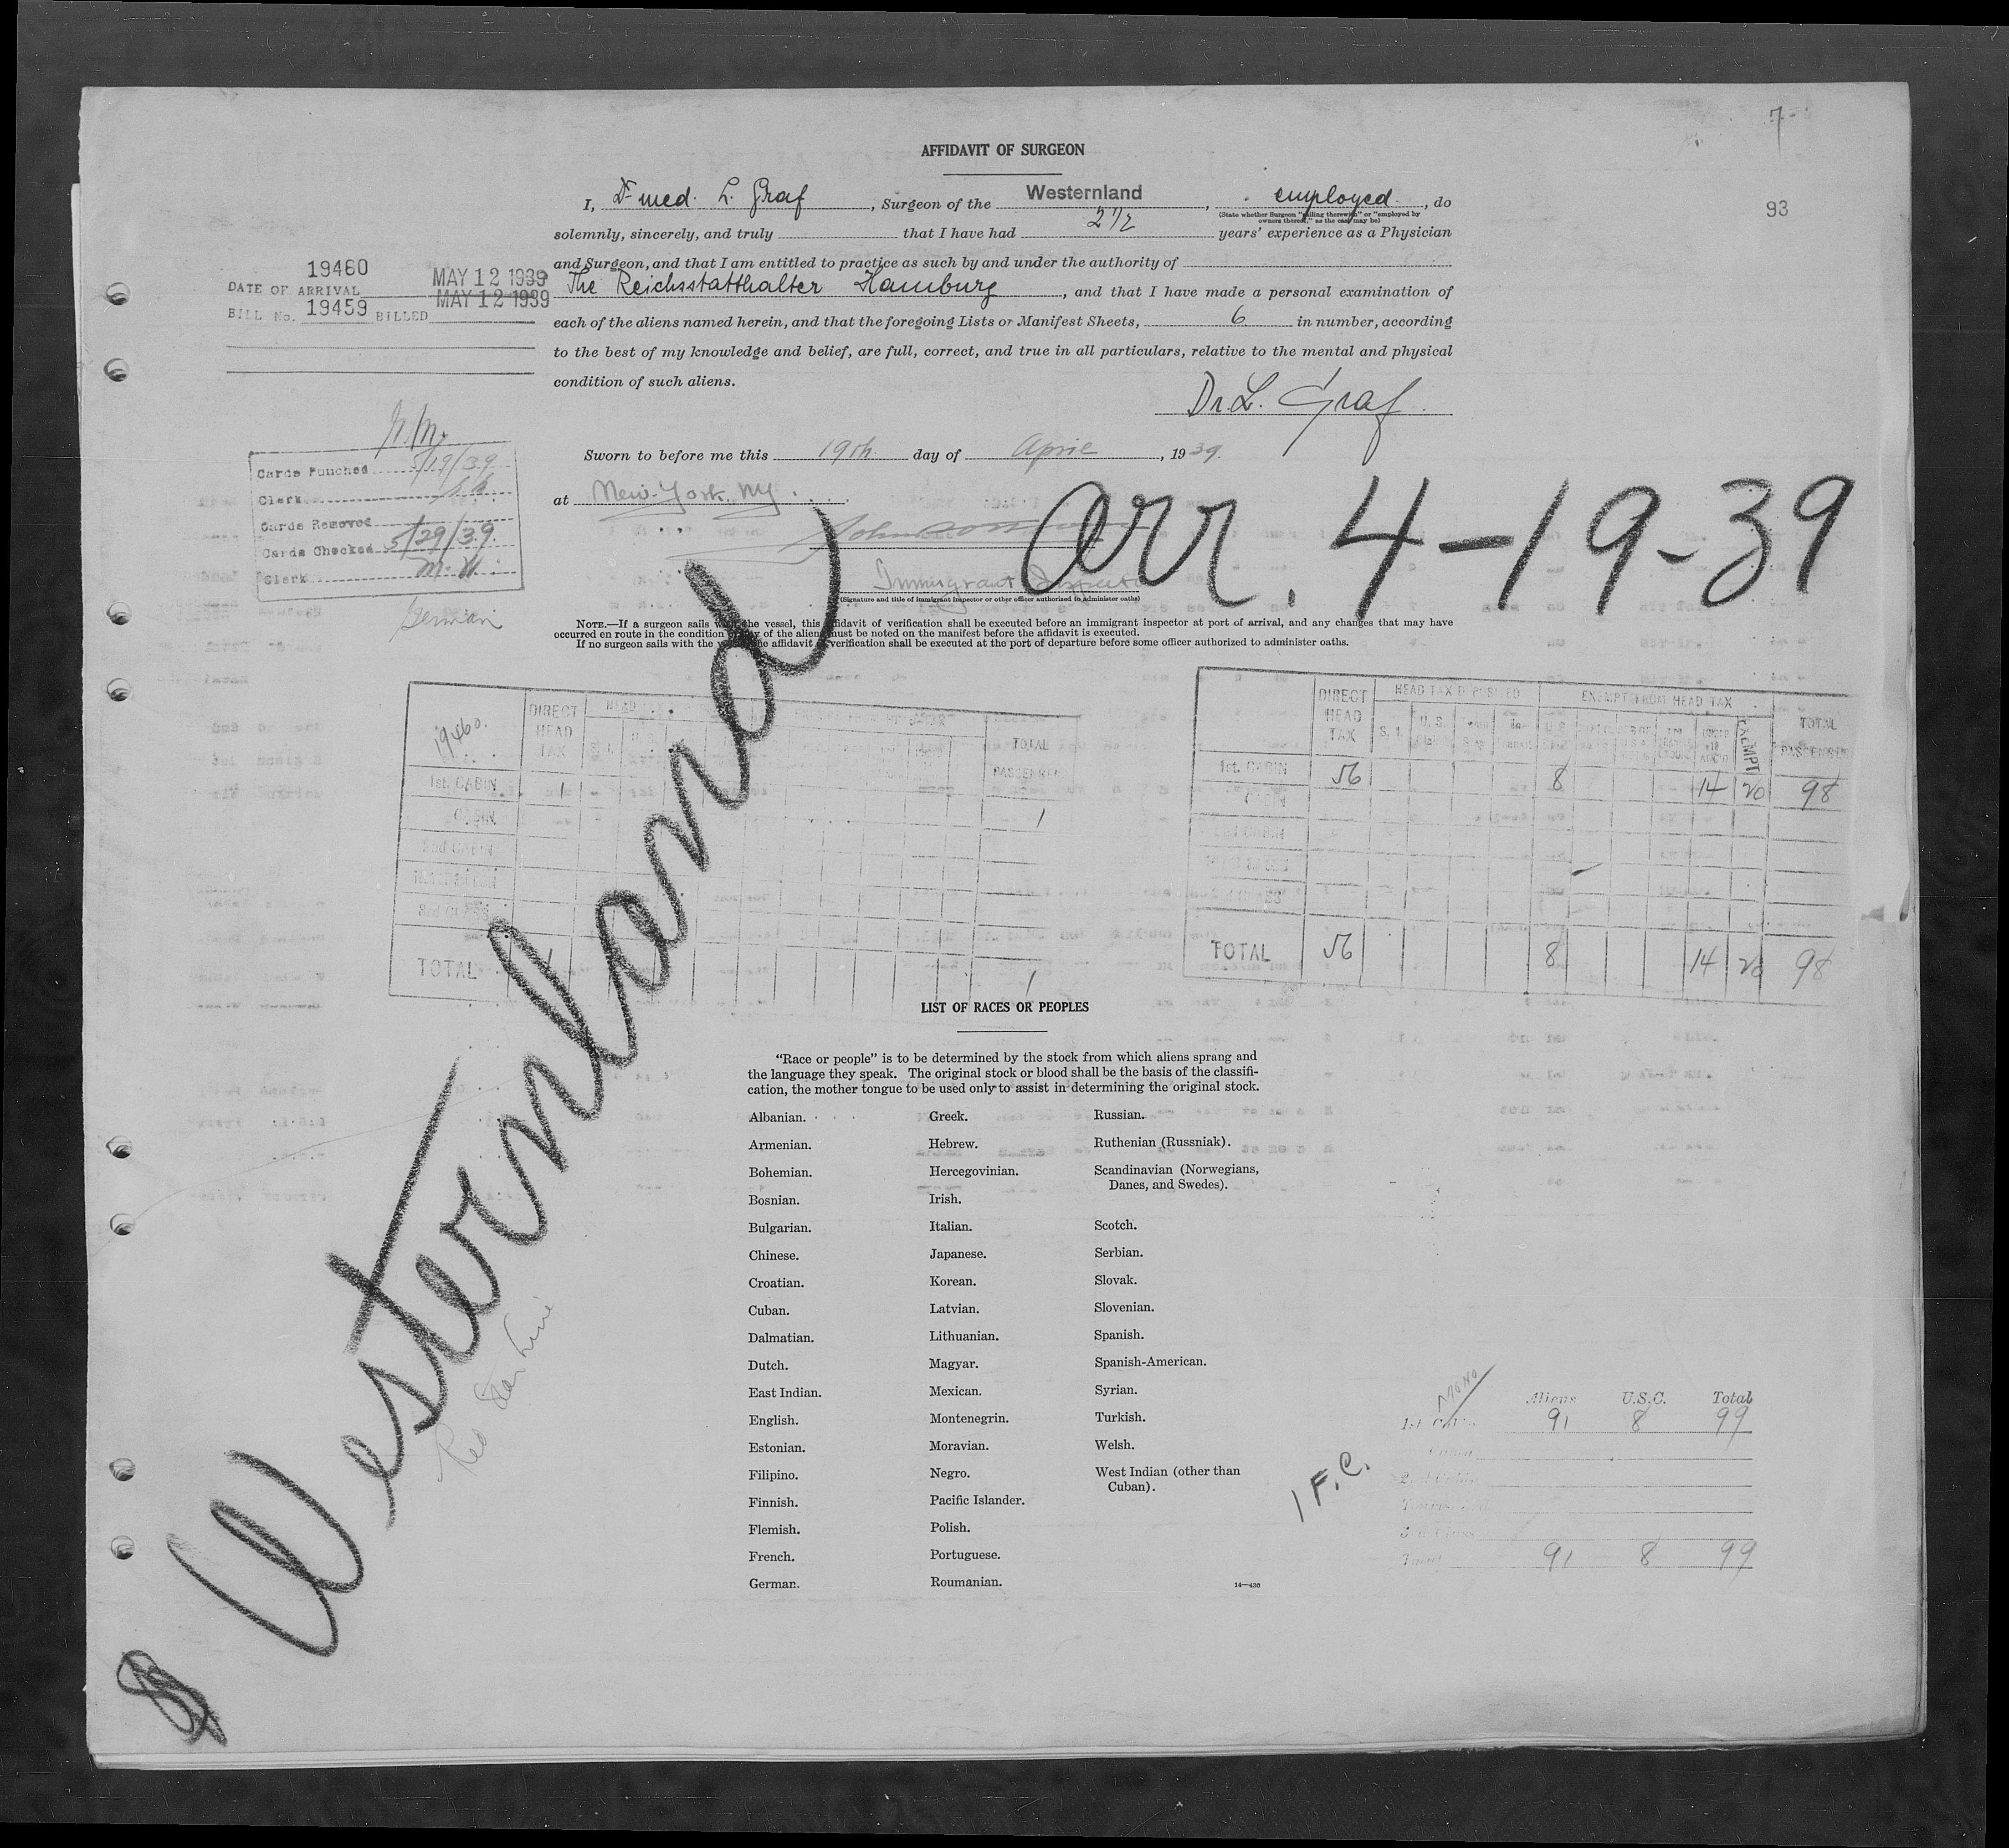 7-
93
AFFIDAVIT OF SURGEON
I, Dr med. L. Graf, Surgeon of the Westernland, employed, do
(State whether Surgeon "sailing therewith" or "employed by
owners thereof," as the case may be)
solemnly, sincerely, and truly that I have had 2 1/2 years' experience as a Physician
and Surgeon, and that I am entitled to practice as such by and under the authority of
The Reichsstatthalter Hamburg, and that I have made a personal examination of
each of the aliens named herein, and that the foregoing Lists or Manifest Sheets, 6 in number, according
to the best of my knowledge and belief, are full, correct, and true in all particulars, relative to the mental and physical
condition of such aliens.
Dr. L. Graf.
19460 MAY 12 1939
DATE OF ARRIVAL MAY 12 1939
BILL No. 19459 BILLED
Sworn to before me this 19th day of April, 1939.
at New York, NY.
arr. 4-19-39
(Signature and title of immigrant inspector or other officer authorized to administer oaths)
Cards Punched 5/19/39
Clerk
Cards Removed
Cards Checked 5/29/39
Clerk M. W.
German
NOTE.—If a surgeon sails with the vessel, this affidavit of verification shall be executed before an immigrant inspector at port of arrival, and any changes that may have
occurred en route in the condition of any of the aliens must be noted on the manifest before the affidavit is executed.
If no surgeon sails with the vessel, the affidavit of verification shall be executed at the port of departure before some officer authorized to administer oaths.
Westernland
Red Star Line
19460. DIRECT HEAD TAX TOTAL PASSENGERS
1st. CABIN 1
CABIN 1
2nd CABIN
3rd CLASS
TOTAL 1 1
DIRECT HEAD TAX HEAD TAX DEPOSITED EXEMPT FROM HEAD TAX EXEMPT TOTAL PASSENGERS
1st. CABIN 56 8 14 20 98
CABIN
TOTAL 56 8 14 20 98
LIST OF RACES OR PEOPLES
"Race or people" is to be determined by the stock from which aliens sprang and
the language they speak. The original stock or blood shall be the basis of the classifi-
cation, the mother tongue to be used only to assist in determining the original stock.
Albanian.
Armenian.
Bohemian.
Bosnian.
Bulgarian.
Chinese.
Croatian.
Cuban.
Dalmatian.
Dutch.
East Indian.
English.
Estonian.
Filipino.
Finnish.
Flemish.
French.
German.
Greek.
Hebrew.
Hercegovinian.
Irish.
Italian.
Japanese.
Korean.
Latvian.
Lithuanian.
Magyar.
Mexican.
Montenegrin.
Moravian.
Negro.
Pacific Islander.
Polish.
Portuguese.
Roumanian.
Russian.
Ruthenian (Russniak).
Scandinavian (Norwegians,
Danes, and Swedes).
Scotch.
Serbian.
Slovak.
Slovenian.
Spanish.
Spanish-American.
Syrian.
Turkish.
Welsh.
West Indian (other than
Cuban).
14—430
1 F.C.
Aliens U.S.C. Total
1st Cabin 91 8 99
Total 91 8 99